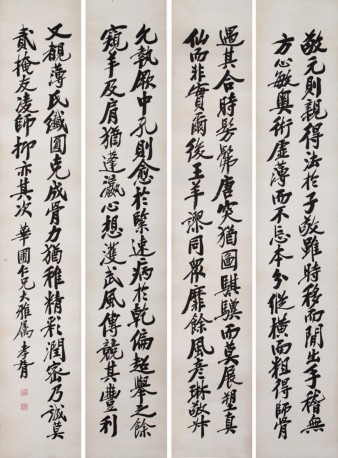 敬元則親得法於子敬雖時移而間出手稽無
方心敏奧術虛薄而不忘本分縱橫而粗得師骨
遇其合時髣髴唐突猶圖騏驥而莫展塑真
仙而非實爾後王羊謬同眾靡餘風彥琳敬叔
允執厥中孔則愈於緊速病於乾偏超舉之餘
窺羊及肩猶蓬瀛心想濩武風傳競其豐利
又觀薄氏纖圓克成骨力猶稚精彩潤密乃誠莫
貳掩友凌師抑亦其次 華圃仁兄大雅屬 孝胥